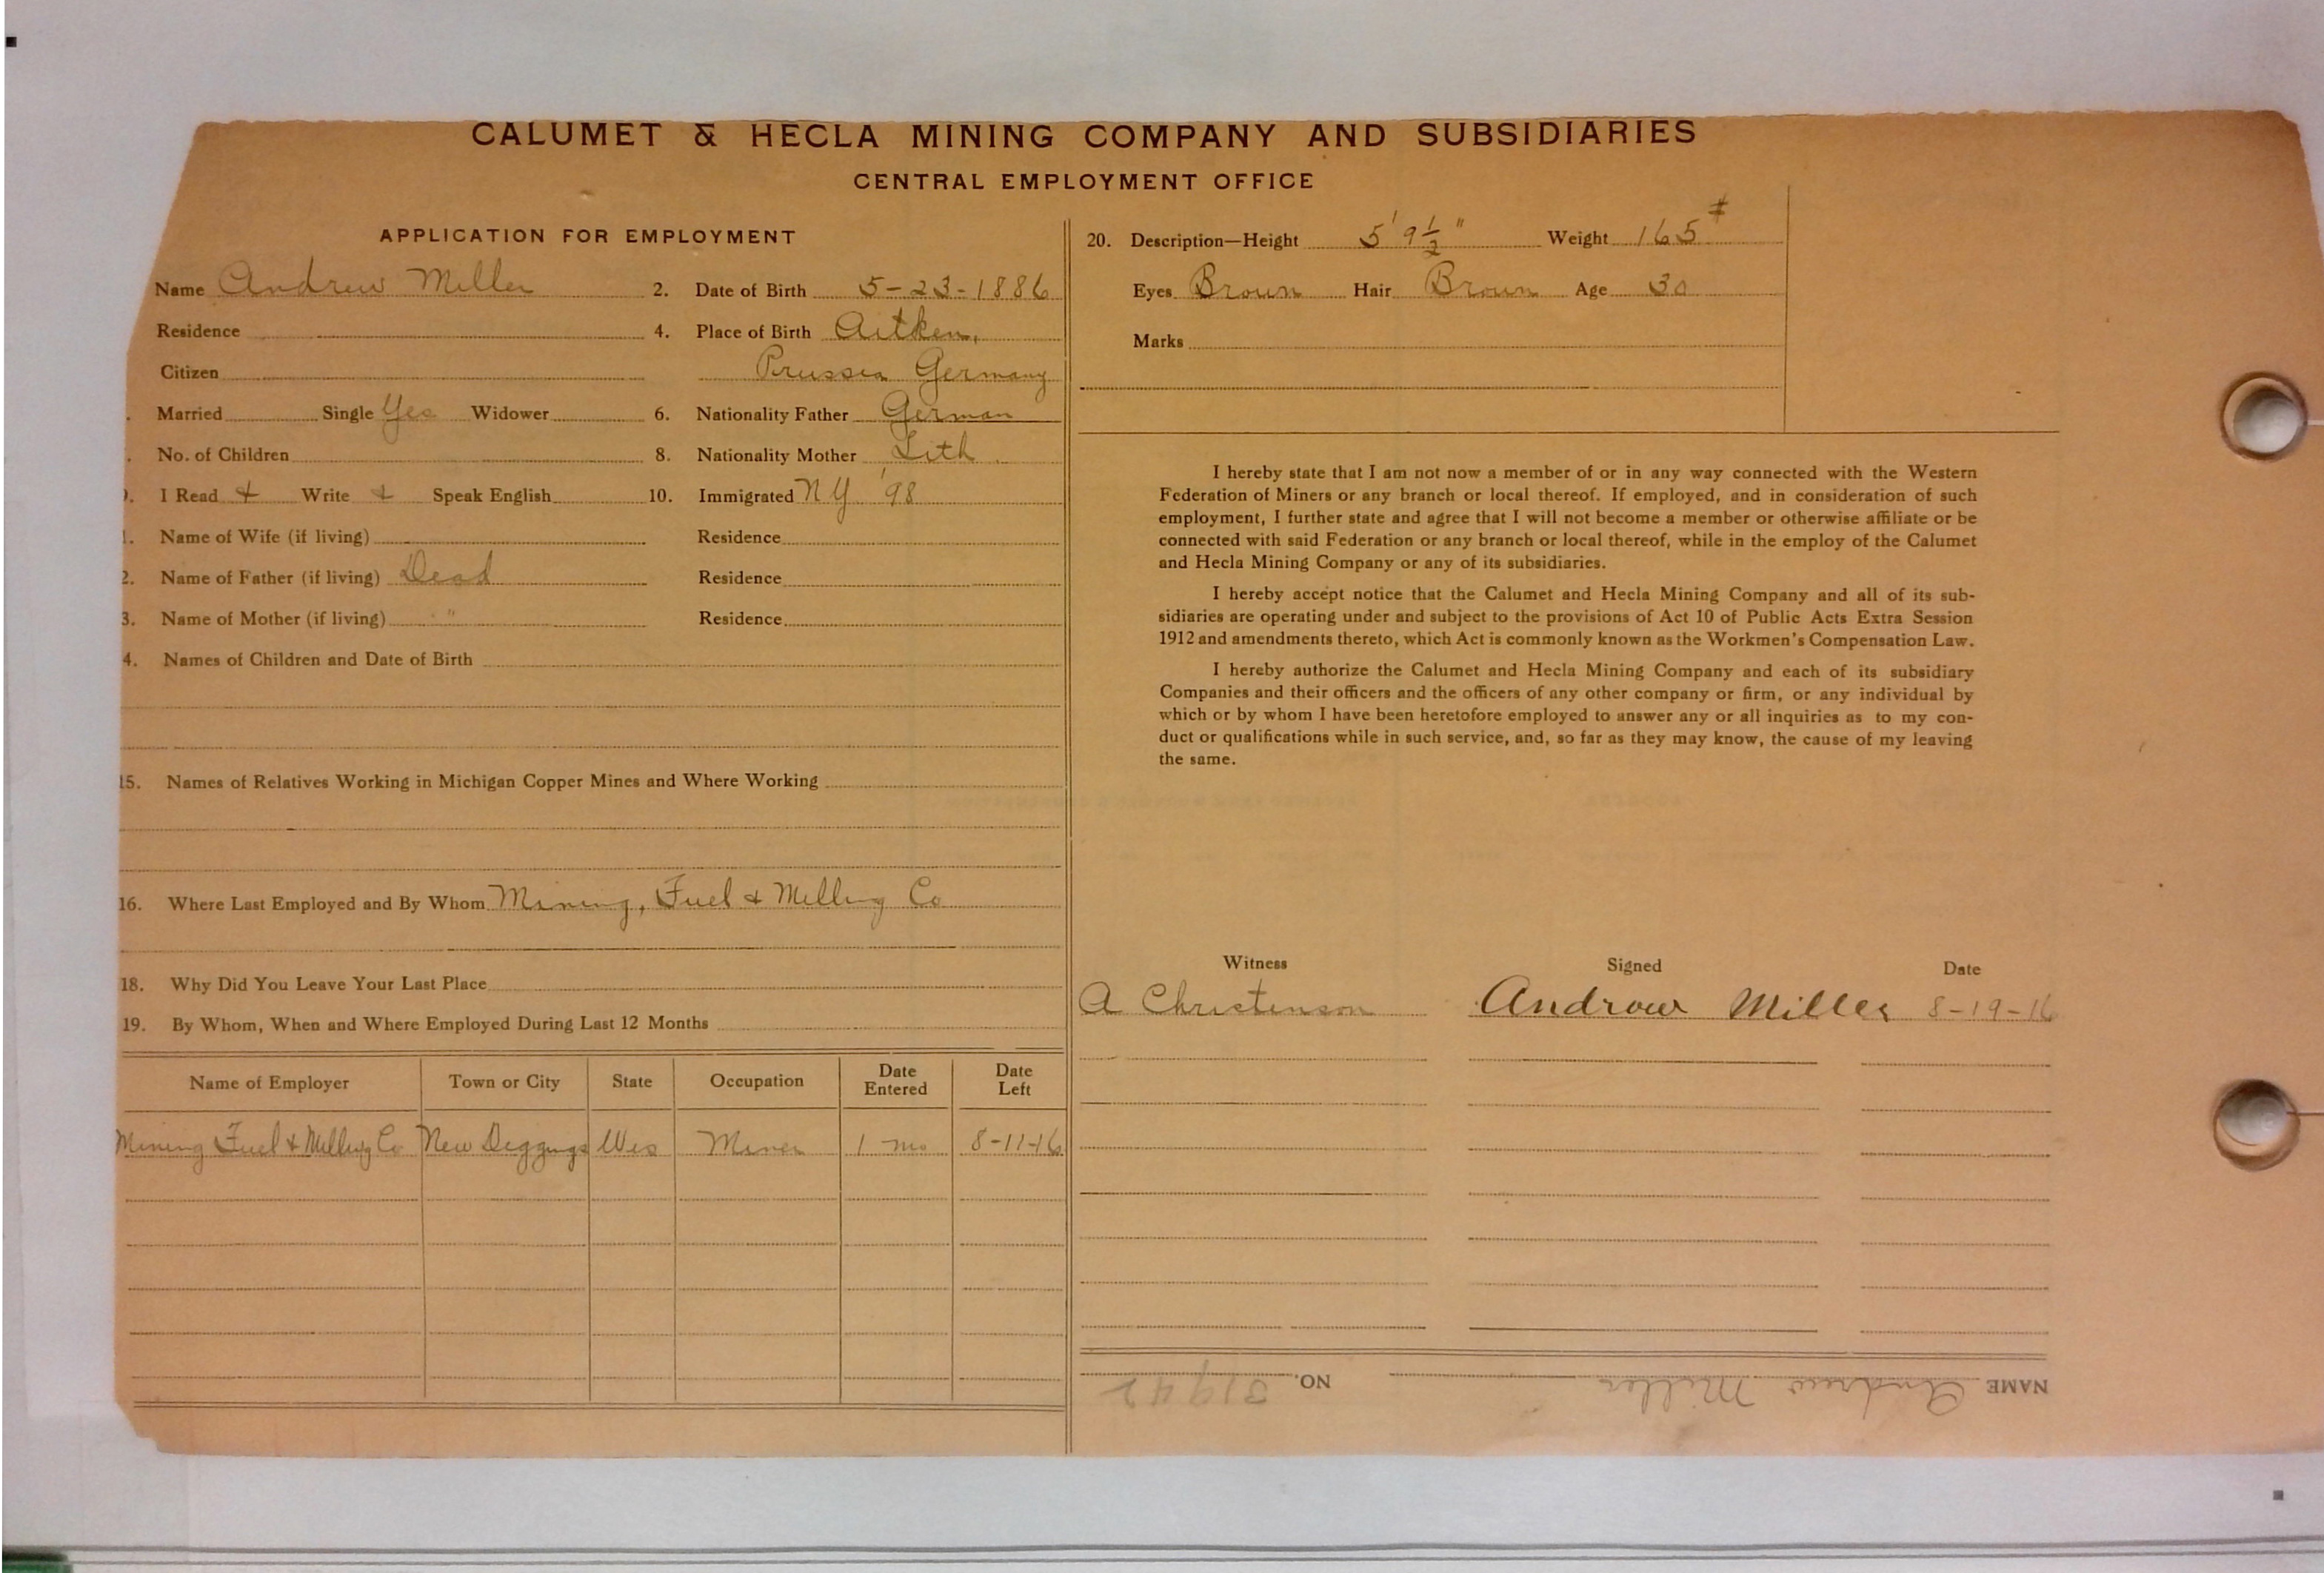 CALUMET & HECLA MINING COMPANY AND SUBSIDIARIES
CENTRAL EMPLOYMENT OFFICE
APPLICATION FOR EMPLOYMENT
Name Andrew Miller 2. Date of Birth 5-23-1886
Residence 4. Place of Birth Aitken,
Citizen Prussia Germany
Married Single Yes Widower 6. Nationality Father German
No. of Children 8. Nationality Mother Lith
I Read + Write + Speak English 10. Immigrated NY '98
1. Name of Wife (if living) Residence
2. Name of Father (if living) Dead Residence
3. Name of Mother (if living) " Residence
4. Names of Children and Date of Birth
15. Names of Relatives Working in Michigan Copper Mines and Where Working
16. Where Last Employed and By Whom Mining, Fuel & Milling Co
18. Why Did You Leave Your Last Place
19. By Whom, When and Where Employed During Last 12 Months
Name of Employer Town or City State Occupation Date Entered Date Left
Mining Fuel & Milling Co New Diggings Wis Miner 1 mo 8-11-16
20. Description—Height 5' 9 1/2" Weight 165 #
Eyes Brown Hair Brown Age 30
Marks
I hereby state that I am not now a member of or in any way connected with the Western
Federation of Miners or any branch or local thereof. If employed, and in consideration of such
employment, I further state and agree that I will not become a member or otherwise affiliate or be
connected with said Federation or any branch or local thereof, while in the employ of the Calumet
and Hecla Mining Company or any of its subsidiaries.
I hereby accept notice that the Calumet and Hecla Mining Company and all of its sub-
sidiaries are operating under and subject to the provisions of Act 10 of Public Acts Extra Session
1912 and amendments thereto, which Act is commonly known as the Workmen's Compensation Law.
I hereby authorize the Calumet and Hecla Mining Company and each of its subsidiary
Companies and their officers and the officers of any other company or firm, or any individual by
which or by whom I have been heretofore employed to answer any or all inquiries as to my con-
duct or qualifications while in such service, and, so far as they may know, the cause of my leaving
the same.
Witness Signed Date
A Christenson Androw Miller 8-19-16
NAME Andrew Miller NO. 51942